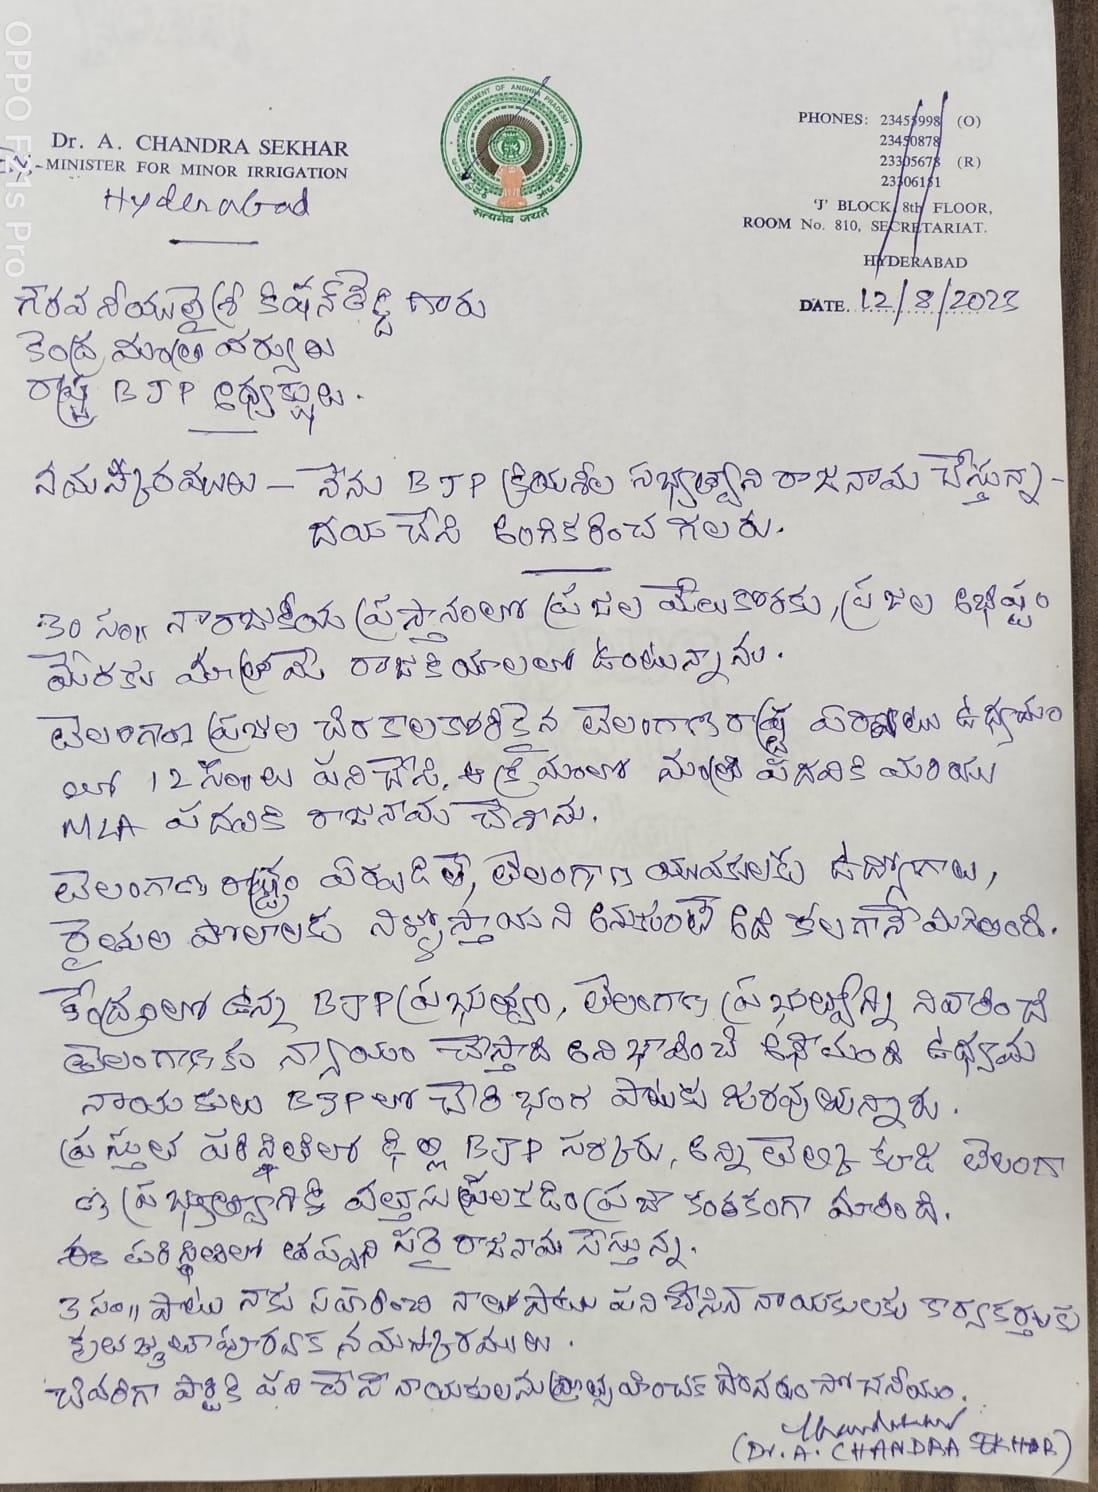 Dr. A. CHANDRA SEKHAR
MINISTER FOR MINOR IRRIGATION
Hyderabad
GOVERNMENT OF ANDHRA PRADESH
सत्यमेव जयते
PHONES: 23455998 (O)
23450878
23305678 (R)
23306151
'J' BLOCK, 8th FLOOR,
ROOM No. 810, SECRETARIAT.
HYDERABAD
DATE. 12/8/2023
గౌరవనీయులైశ్రీ కిషన్‌రెడ్డి గారు
కేంద్ర మంత్రి వర్యులు
రాష్ట్ర BJP అధ్యక్షులు.
నమస్కారములు – నేను BJP క్రియశీల సభ్యత్వాని రాజనామ చేస్తున్న –
దయచేసి అంగికరించ గలరు.
30 సం॥ నారాజకీయ ప్రస్తానంలో ప్రజల మేలు కొరకు, ప్రజల అభీష్టం
మేరకు మాత్రమే రాజకియాలలో ఉంటున్నాను.
తెలంగాణ ప్రజల చిరకాలకోరికైన తెలంగాణ రాష్ట్ర ఏర్పాటు ఉధ్యమం
లో 12 సం॥లు పనిచేసి, ఆ క్రమంలో మంత్రి పదవికి మరియు
MLA పదవికి రాజనామ చేశాను.
తెలంగాణ రాష్ట్రం ఏర్పడితే, తెలంగాణ యువకులకు ఉద్యోగాలు,
రైతుల పొలాలకు నీళ్ళోస్తాయని అనుకుంటే అది కలగానే మిగిలింది.
కేంద్రంలో ఉన్న BJP ప్రభుత్వం, తెలంగాణ ప్రభుత్వాన్ని నివారించి
తెలంగాణకు న్యాయం చేస్తాది అని భావించి అనేమంది ఉధ్యమ
నాయకులు BJP లో చేరి భంగ పాటుకు గురవుతున్నారు.
ప్రస్తుత పరిస్థితిలో ఢిల్లీ BJP సర్కారు, అన్ని తెల్సి కూడ తెలంగా
ణ ప్రభుత్వానికి వత్తాసు పలకడం ప్రజా కంఠకంగా మారింది.
ఈ పరిస్థితిలో తప్పని సరై రాజనామ చేస్తున్న.
3 సం॥ పాటు నాకు సహకరించి నాతోపాటు పనిచేసిన నాయకులకు కార్యకర్తలకు
కృతజ్ఞతాపూర్వక నమస్కారములు.
చివరిగా పార్టికి పని చేసే నాయకులను ప్రోత్సహించక పోవడం సోచనీయం.
(Dr. A. CHANDRA SEKHAR)
OPPO F21s Pro